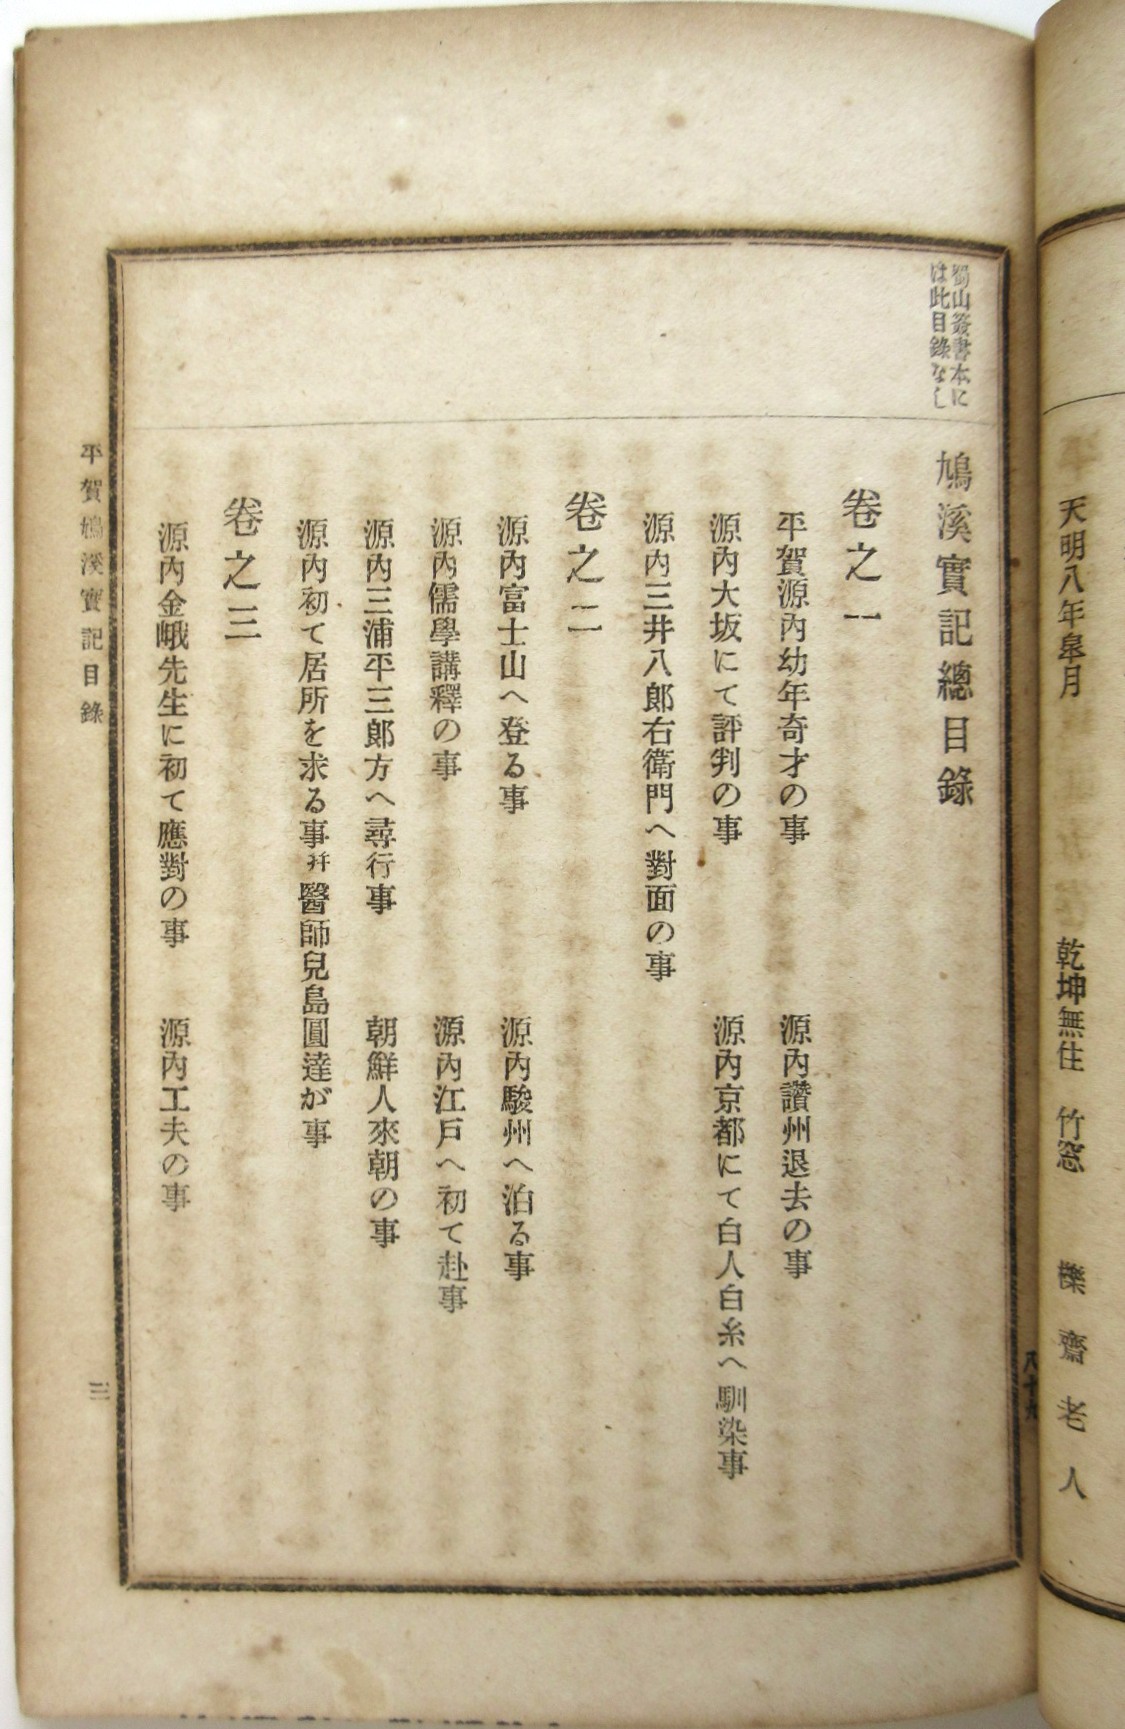 天明八年皐月
乾坤無住 竹窓 櫟齋老人
蜀山叢書本に
は此目錄なし
鳩溪實記總目錄
卷之一
平賀源內幼年奇才の事 源內讚州退去の事
源內大坂にて評判の事 源內京都にて白人白糸へ馴染事
源內三井八郎右衞門へ對面の事
卷之二
源內富士山へ登る事 源內駿州へ泊る事
源內儒學講釋の事 源內江戶へ初て赴事
源內三浦平三郎方へ尋行事 朝鮮人來朝の事
源內初て居所を求る事幷醫師兒島圓達が事
卷之三
源內金峨先生に初て應對の事 源內工夫の事
平賀鳩溪實記目錄
三